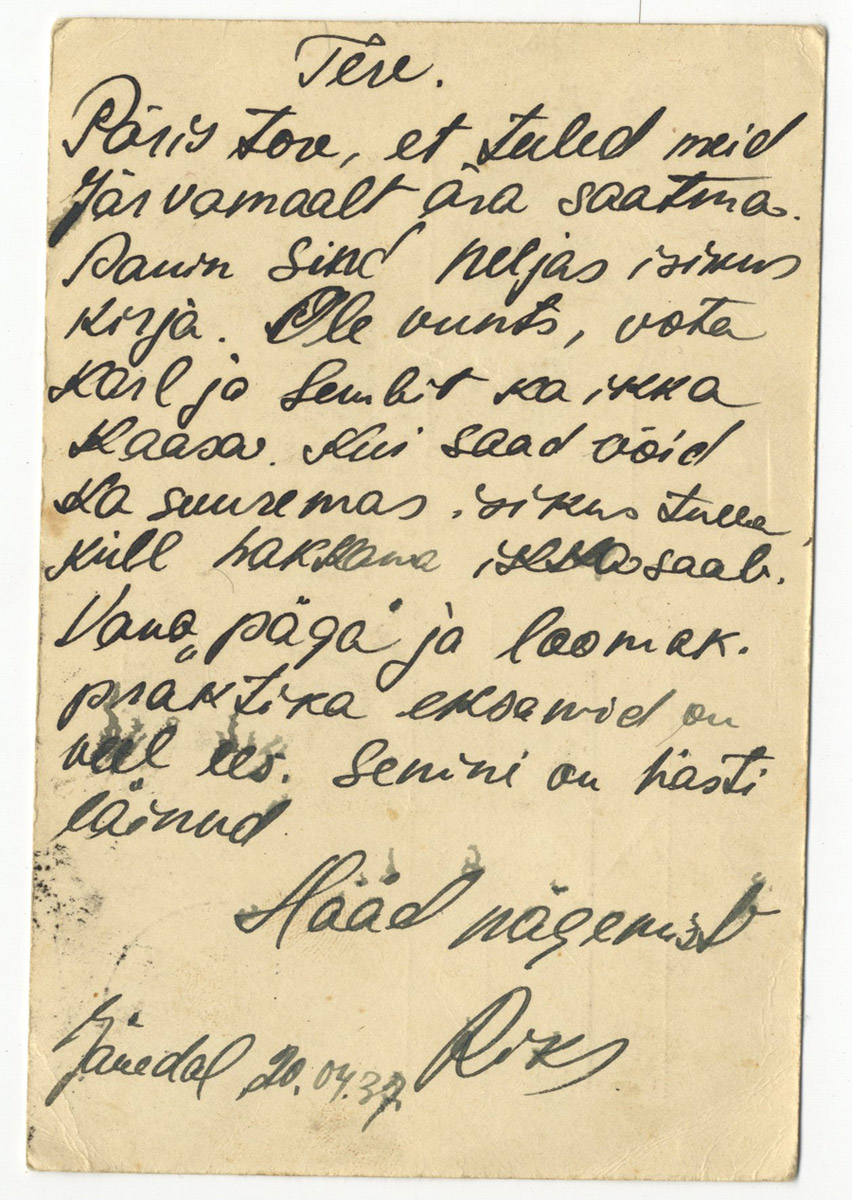 Tere.
Päris tore, et tuled meid
Järvamaalt ära saatma.
Panin Sind neljas isikus
kirja. Ole vunts, võta
Karl ja Lembit ka ikka
kaasa. Kui saad võid
ka suuremas isikus tulla,
küll hakkama ikka saab.
Vana „päga" ja loomak.
praktika eksamid on
veel ees. Senini on hästi
läinud
Hääd nägemist
Riks
Jänedal 20.04.37